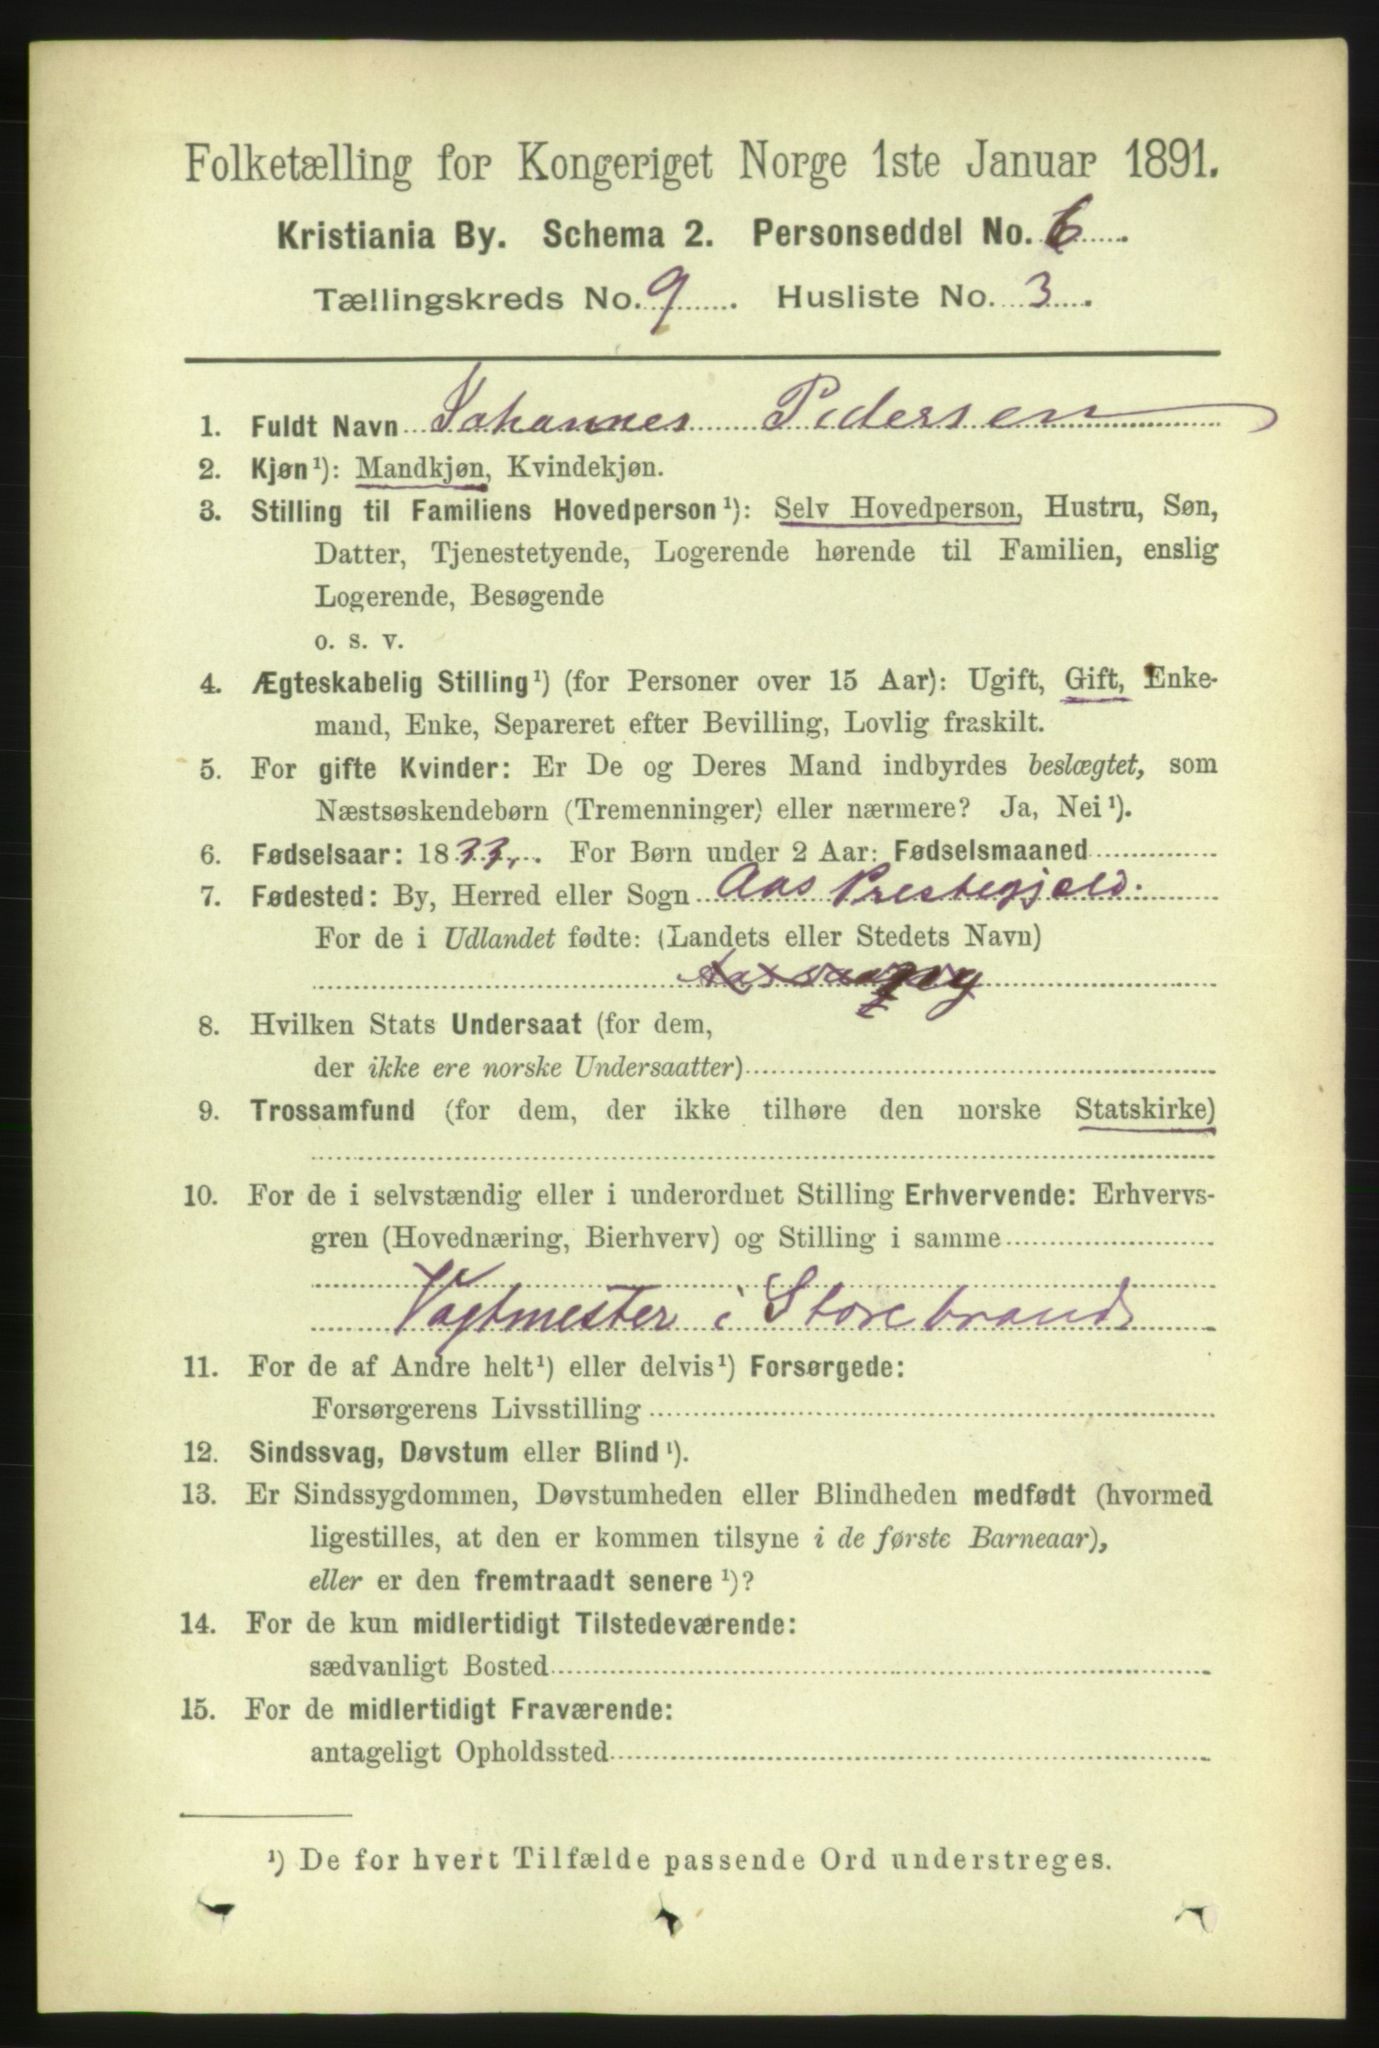 Folketælling for Kongeriget Norge 1ste Januar 1891.
Kristiania By. Schema 2. Personseddel No. 6.
Tællingskreds No. 9. Husliste No. 3.
1. Fuldt Navn Johannes Pedersen
2. Kjøn¹): Mandkjøn, Kvindekjøn.
3. Stilling til Familiens Hovedperson¹): Selv Hovedperson, Hustru, Søn,
Datter, Tjenestetyende, Logerende hørende til Familien, enslig
Logerende, Besøgende
o. s. v.
4. Ægteskabelig Stilling¹) (for Personer over 15 Aar): Ugift, Gift, Enke-
mand, Enke, Separeret efter Bevilling, Lovlig fraskilt.
5. For gifte Kvinder: Er De og Deres Mand indbyrdes beslægtet, som
Næstsøskendebørn (Tremenninger) eller nærmere? Ja, Nei¹).
6. Fødselsaar: 1833. For Børn under 2 Aar: Fødselsmaaned
7. Fødested: By, Herred eller Sogn Aas Prestegjæld.
For de i Udlandet fødte: (Landets eller Stedets Navn)
8. Hvilken Stats Undersaat (for dem,
der ikke ere norske Undersaatter)
9. Trossamfund (for dem, der ikke tilhøre den norske Statskirke)
10. For de i selvstændig eller i underordnet Stilling Erhvervende: Erhvervs-
gren (Hovednæring, Bierhverv) og Stilling i samme
Vagtmester i Storebrand
11. For de af Andre helt¹) eller delvis¹) Forsørgede:
Forsørgerens Livsstilling
12. Sindssvag, Døvstum eller Blind¹).
13. Er Sindssygdommen, Døvstumheden eller Blindheden medfødt (hvormed
ligestilles, at den er kommen tilsyne i de første Barneaar),
eller er den fremtraadt senere¹)?
14. For de kun midlertidigt Tilstedeværende:
sædvanligt Bosted
15. For de midlertidigt Fraværende:
antageligt Opholdssted
¹) De for hvert Tilfælde passende Ord understreges.